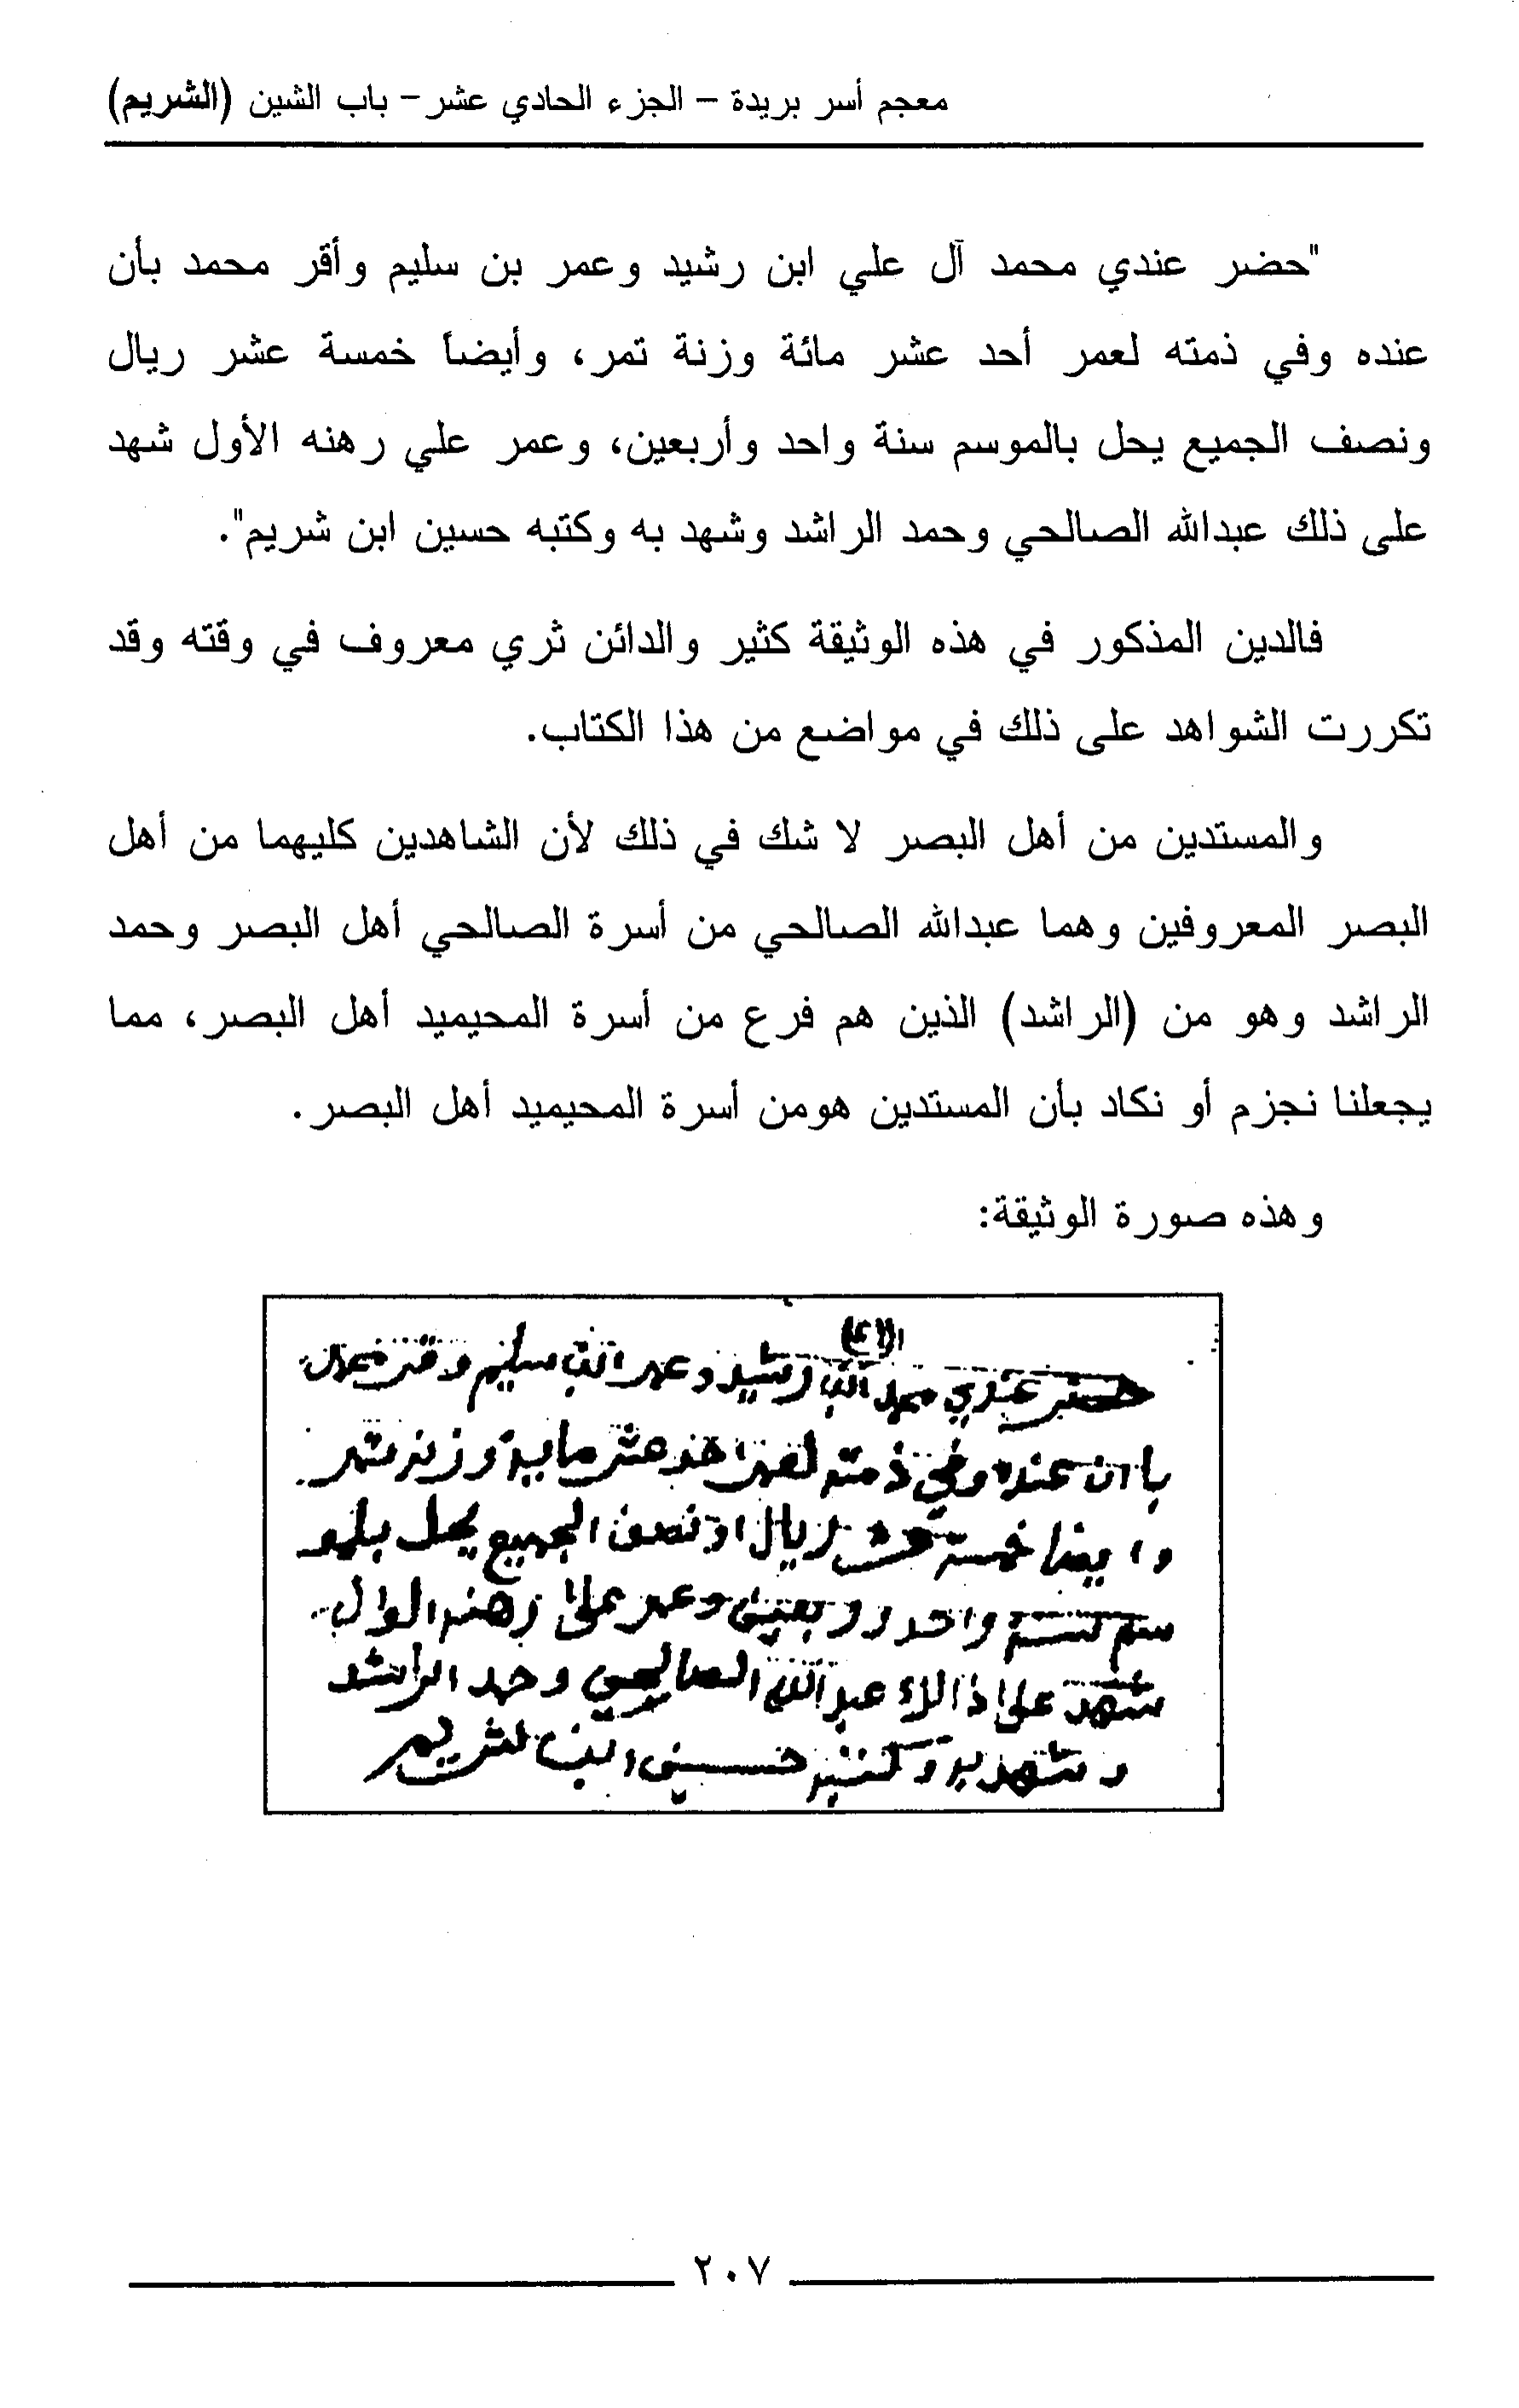 معجم أسر بريدة – الجزء الحادي عشر– باب الشين (الشريم)
"حضر عندي محمد آل علي ابن رشيد وعمر بن سليم وأقر محمد بأن
عنده وفي ذمته لعمر أحد عشر مائة وزنة تمر، وأيضاً خمسة عشر ريال
ونصف الجميع يحل بالموسم سنة واحد وأربعين، وعمر علي رهنه الأول شهد
على ذلك عبدالله الصالحي وحمد الراشد وشهد به وكتبه حسين ابن شريم".
فالدين المذكور في هذه الوثيقة كثير والدائن ثري معروف في وقته وقد
تكررت الشواهد على ذلك في مواضع من هذا الكتاب.
والمستدين من أهل البصر لا شك في ذلك لأن الشاهدين كليهما من أهل
البصر المعروفين وهما عبدالله الصالحي من أسرة الصالحي أهل البصر وحمد
الراشد وهو من (الراشد) الذين هم فرع من أسرة المحيميد أهل البصر، مما
يجعلنا نجزم أو نكاد بأن المستدين هومن أسرة المحيميد أهل البصر.
وهذه صورة الوثيقة:
حضر عندي محمد ابن رشيد وعمر ابن سليم وقر محمد
باان عنده وفي ذمته لعمر احد عشر ماية وزنه تمر
وايضا خمسة عشر ريال او نصف الجميع يحل بلمو
سم سنة واحد وربعين وعمر على رهنه الاول
شهد على ذالك عبدالله الصالحي وحمد الراشد
وشهد به وكتبه حسين ابن شريم
٢٠٧